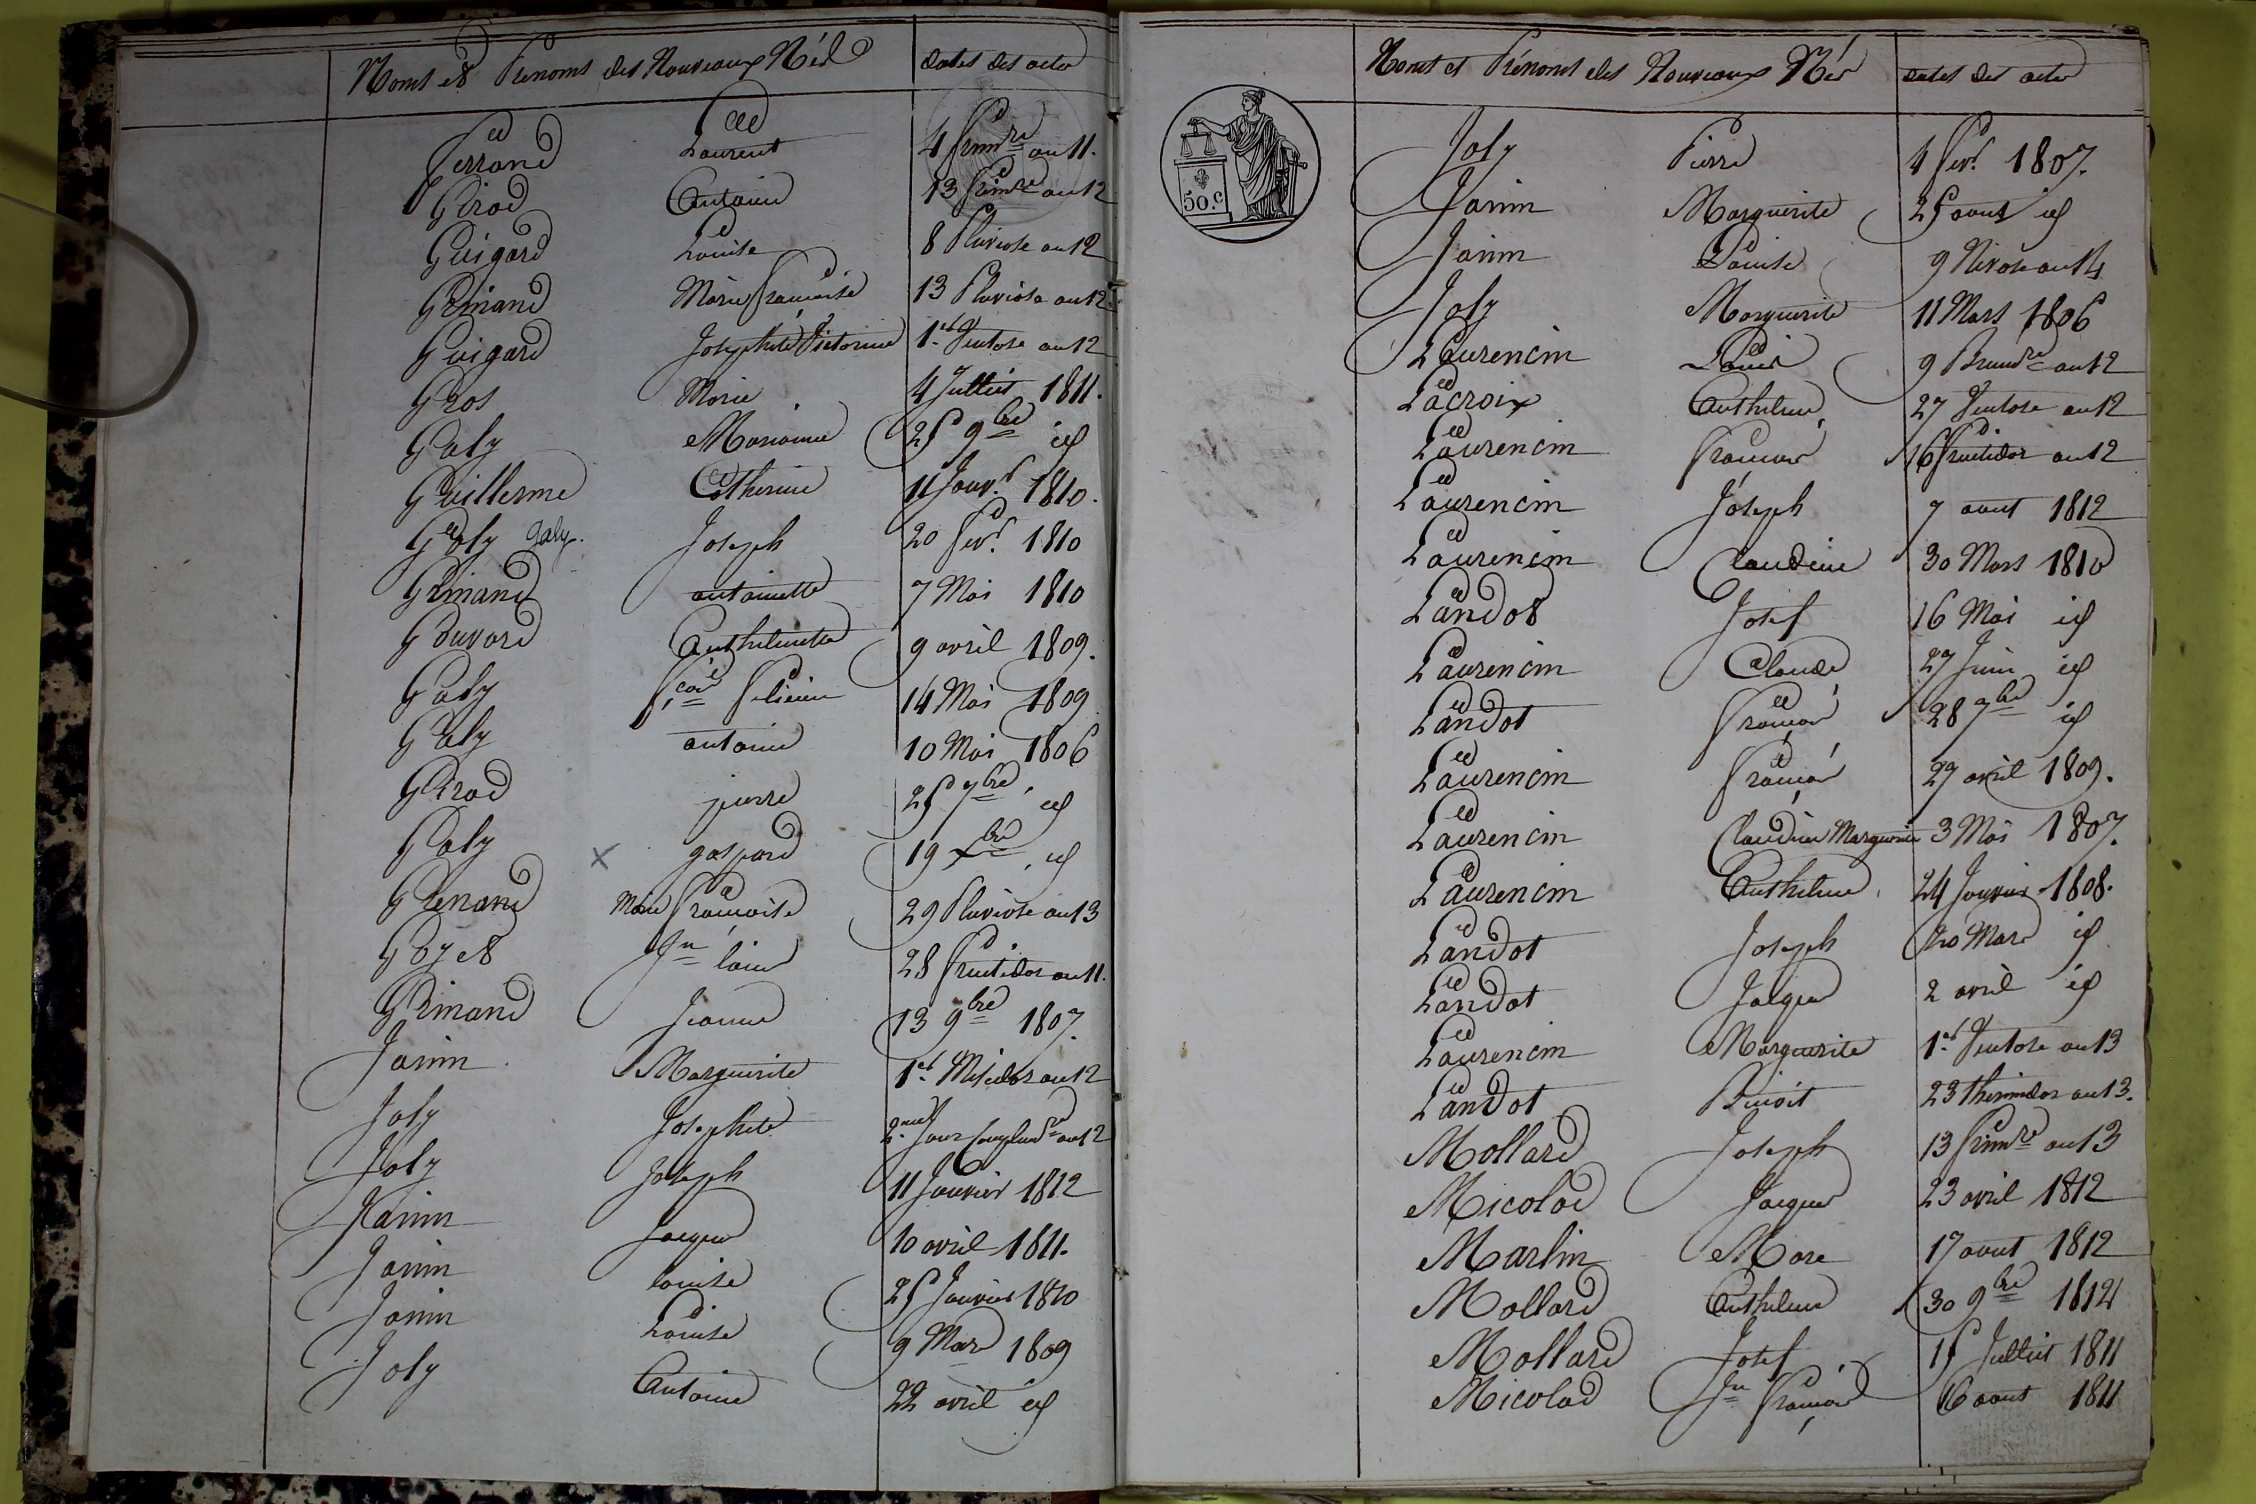 Noms et Prénoms des Nouveaux Nés dates des actes
Ferrand Laurent 4 frimre an 11.
Girod Antoine 13 frimre an 12
Guigard Louise 8 Pluviose an 12
Grinand Marie françoise 13 Pluviose an 12
Guigard Josephte Victorine 1er Ventose an 12
Gros Marie 4 Juillet 1811.
Galy Marianne 25 9bre id
Guillerme Catherine 11 Janvr 1810.
Galy Galy. Joseph 20 fevr. 1810
Grinand antoinette 7 Mai 1810
Gouvard Anthelmette 9 avril 1809.
Galy fçoise 14 Mai 1809
Galy antoine 10 Mai 1806
Girod pierre 25 7bre id
Galy x gaspard 19 Xbre id
Grenand Marie françoise 29 Pluviose an 13
Goyet Jn louis 28 fructidor an 11.
Grinand Jeanne 13 9bre 1807.
Janin Marguerite 1er Messidor an 12
Joly Josephte 2me Jour complemre an 12
Joly Joseph 11 Janvier 1812
Janin Jacques 10 avril 1811.
Janin louise 25 Janvier 1810
Janin Louise 9 Mars 1809
Joly Antoine 22 avril id
Noms et Prénoms des Nouveaux Nés dates des actes
50.c
Joly Pierre 4 fevr. 1807.
Janin Marguerite 25 aout id
Janin Louise 9 Nivose an 14
Joly Marguerite 11 Mars 1806
Laurencin Louis 9 Brumre an 12
Lacroix Anthelme 27 Ventose an 12
Laurencin François 16 fructidor an 12
Laurencin Joseph 7 aout 1812
Laurencin Claudine 30 Mars 1810
Landot Josef 16 Mai id
Laurencin Claude 27 Juin id
Landot François 28 7bre id
Laurencin François 27 avril 1809.
Laurencin Claudine Marguerite 3 Mai 1807.
Laurencin Anthelme 24 Janvier 1808.
Landot Joseph 20 Mars id
Landot Jacques 2 avril id
Laurencin Marguerite 1er Ventose an 13
Landot Benoit 23 thermidor an 13.
Mollard Joseph 13 frimre an 13
Micolod Jacques 23 avril 1812
Marlin Marc 17 aout 1812
Mollard Anthelme 30 9bre
Mollard Josef 15 Juillet 1811
Micolod Jn François 16 aout 1811